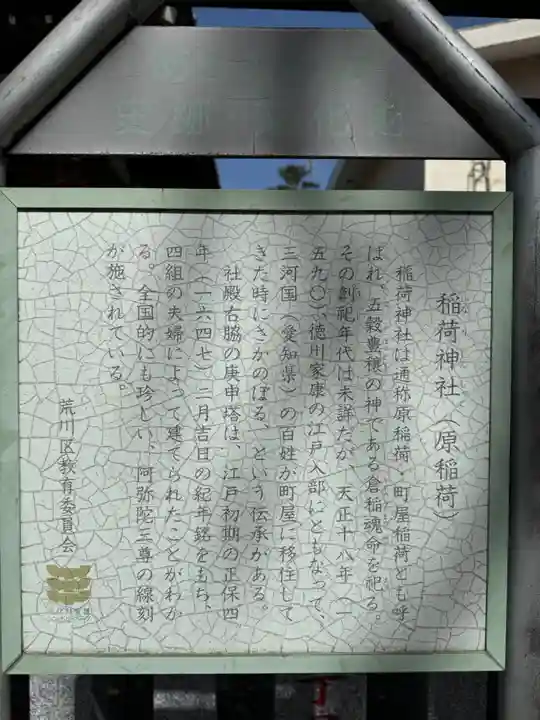 稲荷神社（原稲荷）
稲荷神社は通称原稲荷・町屋稲荷とも呼
ばれ。五穀豊穣の神である倉稲魂命を祀る。
その創祀年代は未詳だが、天正十八年（一
五九〇）、徳川家康の江戸入部にともなって、
三河国（愛知県）の百姓が町屋に移住して
きた時にさかのぼる、という伝承がある。
社殿右脇の庚申塔は、江戸初期の正保四
年（一六四七）二月吉日の紀年銘をもち、
四組の夫婦によって建てられたことがわか
る。全国的にも珍しい、阿弥陀三尊の線刻
が施されている。
荒川区教育委員会